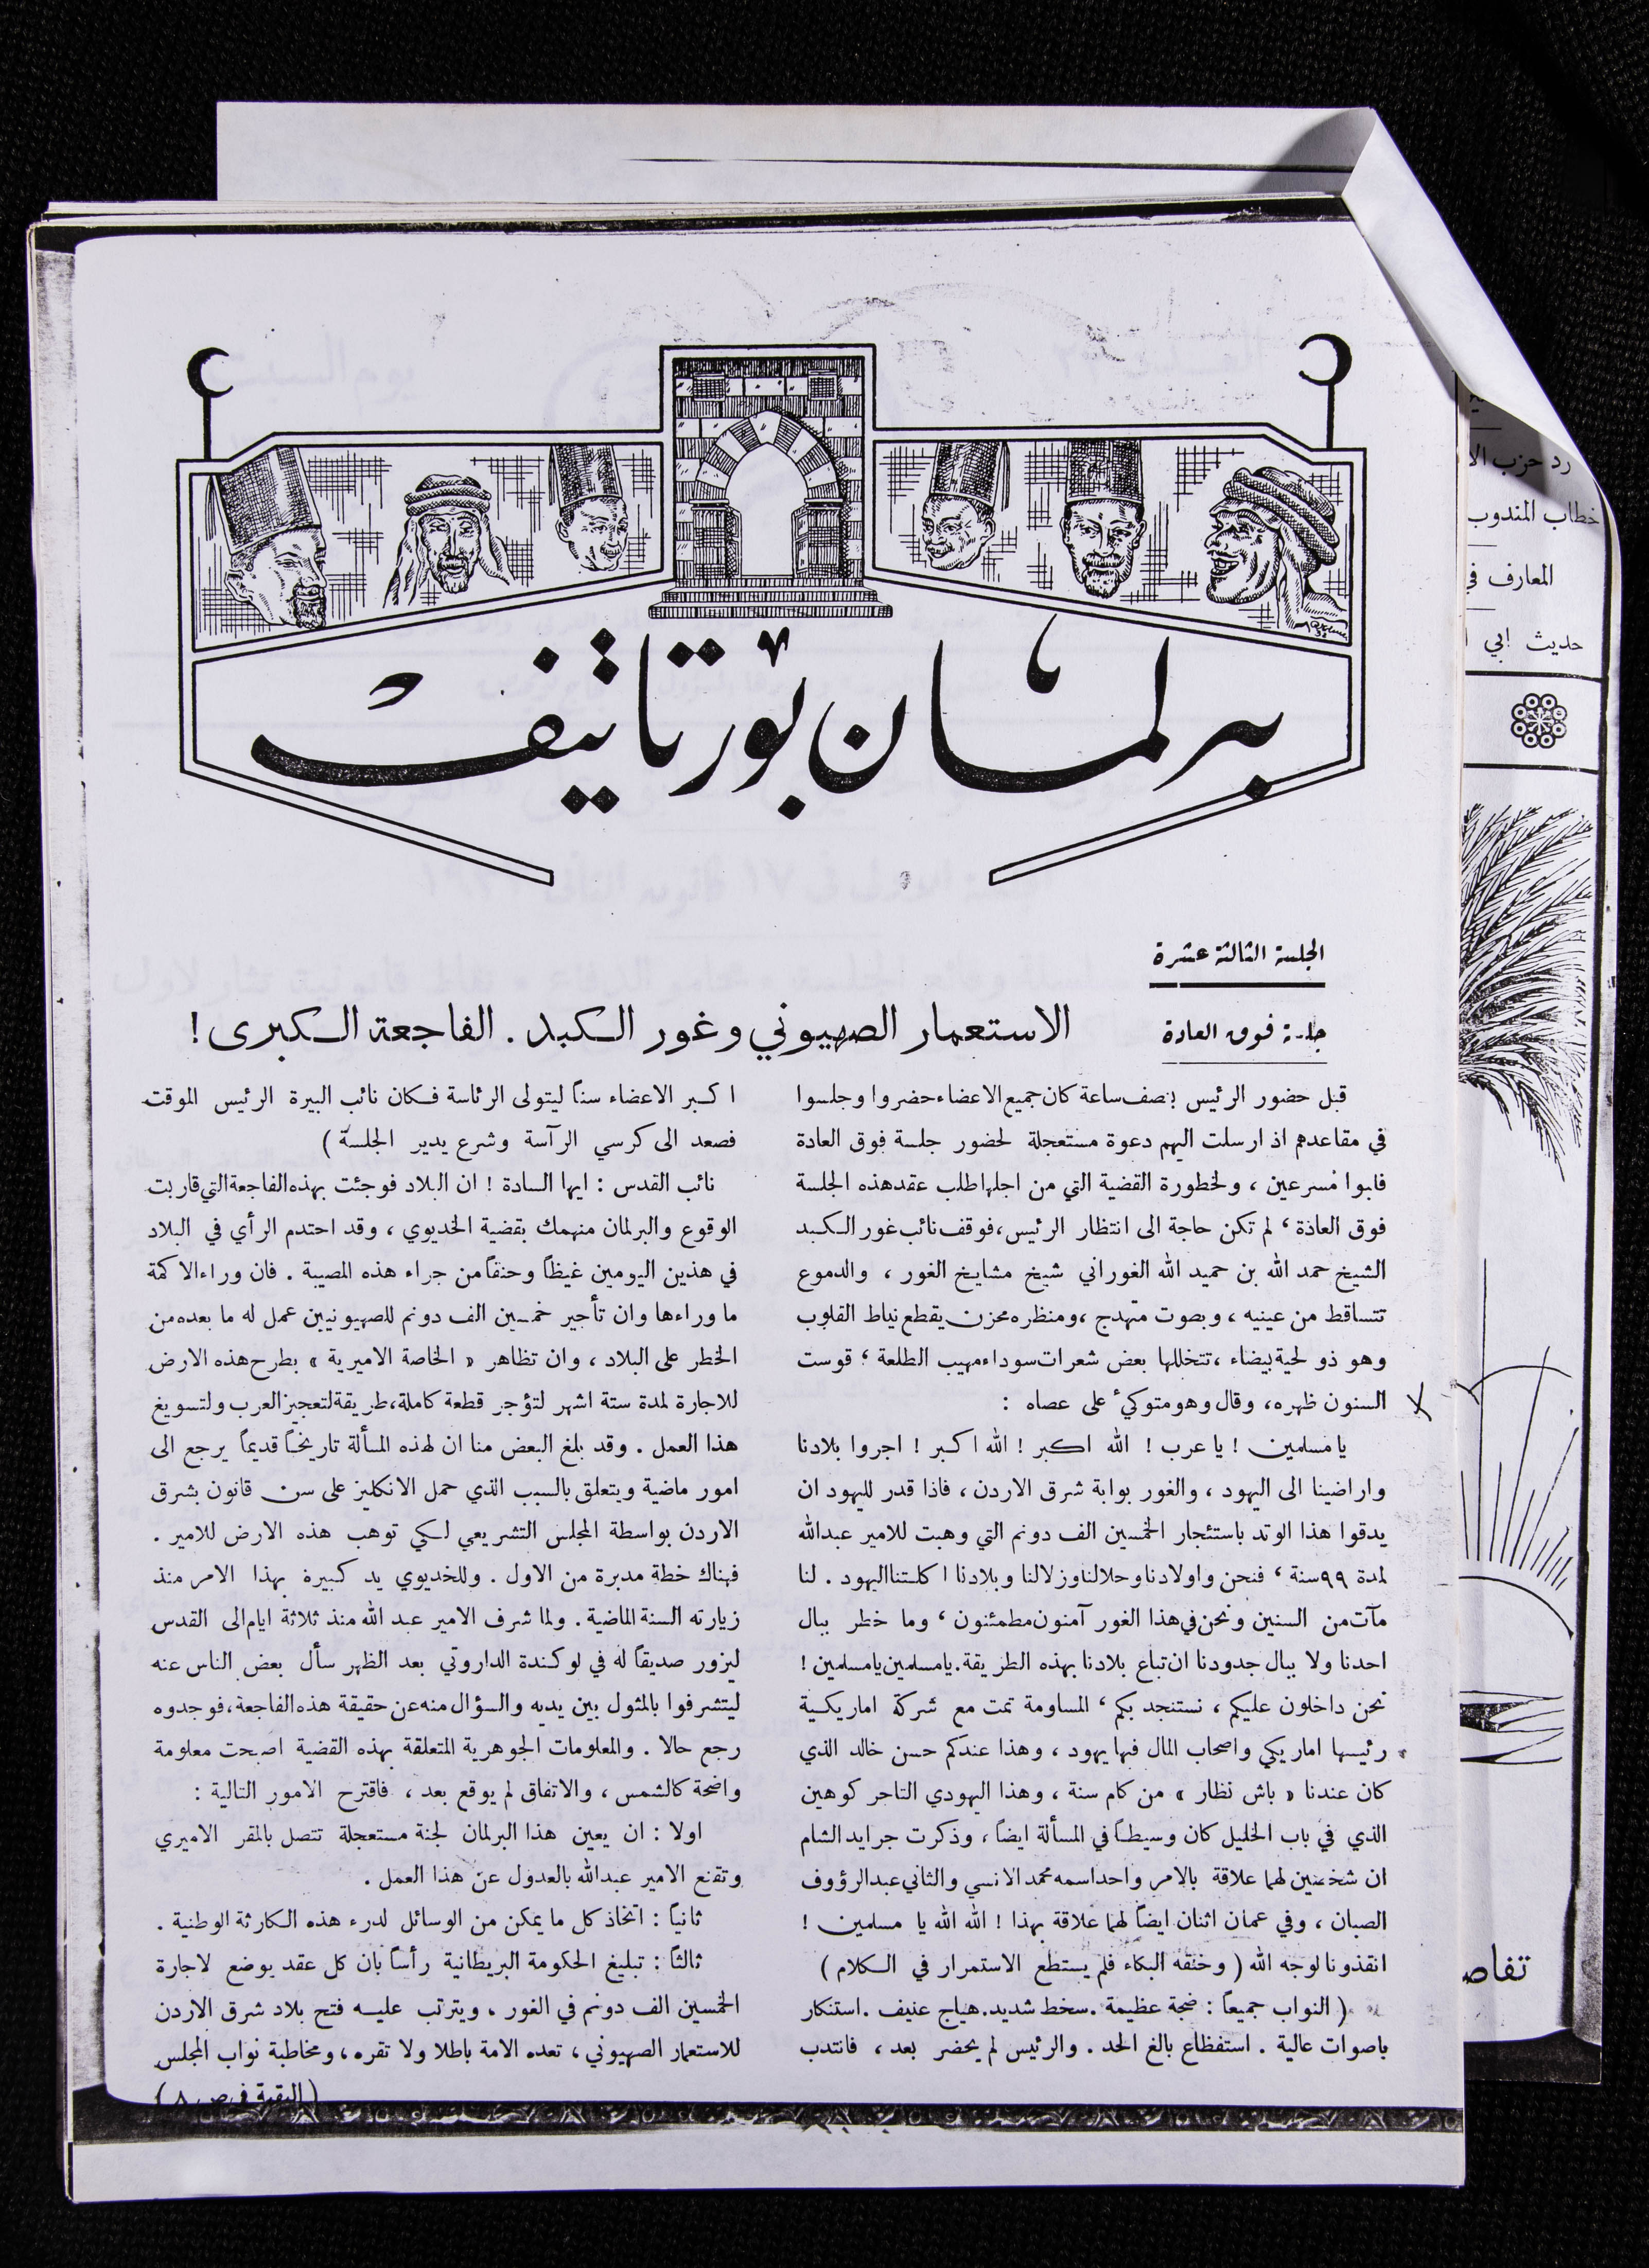 برلمان بورتاتيف
الجلسة الثالثة عشرة
جلسة فوق العادة
الاستعمار الصهيوني وغور الكبد . الفاجعة الكبرى !
قبل حضور الرئيس بنصف ساعة كان جميع الاعضاء حضروا وجلسوا
في مقاعدهم اذ ارسلت اليهم دعوة مستعجلة لحضور جلسة فوق العادة
فابوا مسرعين ، ولخطورة القضية التي من اجلها طلب عقد هذه الجلسة
فوق العادة ، لم تكن حاجة الى انتظار الرئيس ، فوقف نائب غور الكبد
الشيخ حمد الله بن حميد الله الغوراني شيخ مشايخ الغور ، والدموع
تتساقط من عينيه ، وبصوت متهدج ، ومنظره محزن يقطع نياط القلوب
وهو ذو لحية بيضاء ، تتخللها بعض شعرات سوداء مهيب الطلعة ؛ قوست
السنون ظهره ، وقال وهو متوكئ على عصاه :
يا مسلمين ! يا عرب ! الله اكبر ! الله اكبر ! اجروا بلادنا
واراضينا الى اليهود ، والغور بوابة شرق الاردن ، فاذا قدر لليهود ان
يدقوا هذا الوتد باستئجار الخمسين الف دونم التي وهبت للامير عبدالله
لمدة ٩٩ سنة ، فنحن واولادنا وحلالنا وزلالنا وبلادنا اكلتنا اليهود . لنا
مآت من السنين ونحن في هذا الغور آمنون مطمئنون ، وما خطر ببال
احدنا ولا ببال جدودنا ان تباع بلادنا بهذه الطريقة . يا مسلمين يا مسلمين !
نحن داخلون عليكم ، نستنجد بكم ، المساومة تمت مع شركة اماريكية
رئيسها اماريكي واصحاب المال فيها يهود ، وهذا عندكم حسن خالد الذي
كان عندنا « باش نظار » من كام سنة ، وهذا اليهودي التاجر كوهين
الذي في باب الخليل كان وسيطاً في المسألة ايضاً ، وذكرت جرايد الشام
ان شخصين لهما علاقة بالامر واحد اسمه محمد الانسي والثاني عبد الرؤوف
الصبان ، وفي عمان اثنان ايضاً لهما علاقة بهذا ! الله الله يا مسلمين !
انقذونا لوجه الله ( وخنقه البكاء فلم يستطع الاستمرار في الكلام )
( النواب جميعاً : ضجة عظيمة . سخط شديد . هياج عنيف . استنكار
باصوات عالية . استفظاع بالغ الحد . والرئيس لم يحضر بعد ، فانتدب
اكبر الاعضاء سناً ليتولى الرئاسة فكان نائب البيرة الرئيس الموقت
فصعد الى كرسي الرآسة وشرع يدير الجلسة )
نائب القدس : ايها السادة ! ان البلاد فوجئت بهذه الفاجعة التي قاربت
الوقوع والبرلمان منهمك بقضية الخديوي ، وقد احتدم الرأي في البلاد
في هذين اليومين غيظاً وحنقاً من جراء هذه المصيبة . فان وراء الاكمة
ما وراءها وان تأجير خمسين الف دونم للصهيونيين عمل له ما بعده من
الخطر على البلاد ، وان تظاهر « الخاصة الاميرية » بطرح هذه الارض
للاجارة لمدة ستة اشهر لتؤجر قطعة كاملة ، طريقة لتعجيز العرب ولتسويغ
هذا العمل . وقد بلغ البعض منا ان لهذه المسألة تاريخاً قديماً يرجع الى
امور ماضية ويتعلق بالسبب الذي حمل الانكليز على سن قانون بشرق
الاردن بواسطة المجلس التشريعي لكي توهب هذه الارض للامير .
فهناك خطة مدبرة من الاول . وللخديوي يد كبيرة بهذا الامر منذ
زيارته السنة الماضية . ولما شرف الامير عبد الله منذ ثلاثة ايام الى القدس
ليزور صديقاً له في لوكندة الداروتي بعد الظهر سأل بعض الناس عنه
ليتشرفوا بالمثول بين يديه والسؤال منه عن حقيقة هذه الفاجعة ، فوجدوه
رجع حالا . والمعلومات الجوهرية المتعلقة بهذه القضية اصبحت معلومة
واضحة كالشمس ، والاتفاق لم يوقع بعد ، فاقترح الامور التالية :
اولا : ان يعين هذا البرلمان لجنة مستعجلة تتصل بالمقر الاميري
وتقنع الامير عبدالله بالعدول عن هذا العمل .
ثانياً : اتخاذ كل ما يمكن من الوسائل لدرء هذه الكارثة الوطنية .
ثالثاً : تبليغ الحكومة البريطانية رأساً بان كل عقد يوضع لاجارة
الخمسين الف دونم في الغور ، ويترتب عليه فتح بلاد شرق الاردن
للاستعمار الصهيوني ، تعده الامة باطلا ولا تقره ، ومخاطبة نواب المجلس
( البقية في ص ٨ )
رد حزب الا
خطاب المندوب
المعارف في
حديث ابي ا
تفاص